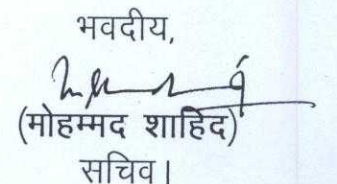 भवदीय,
(मोहम्मद शाहिद)
सचिव।